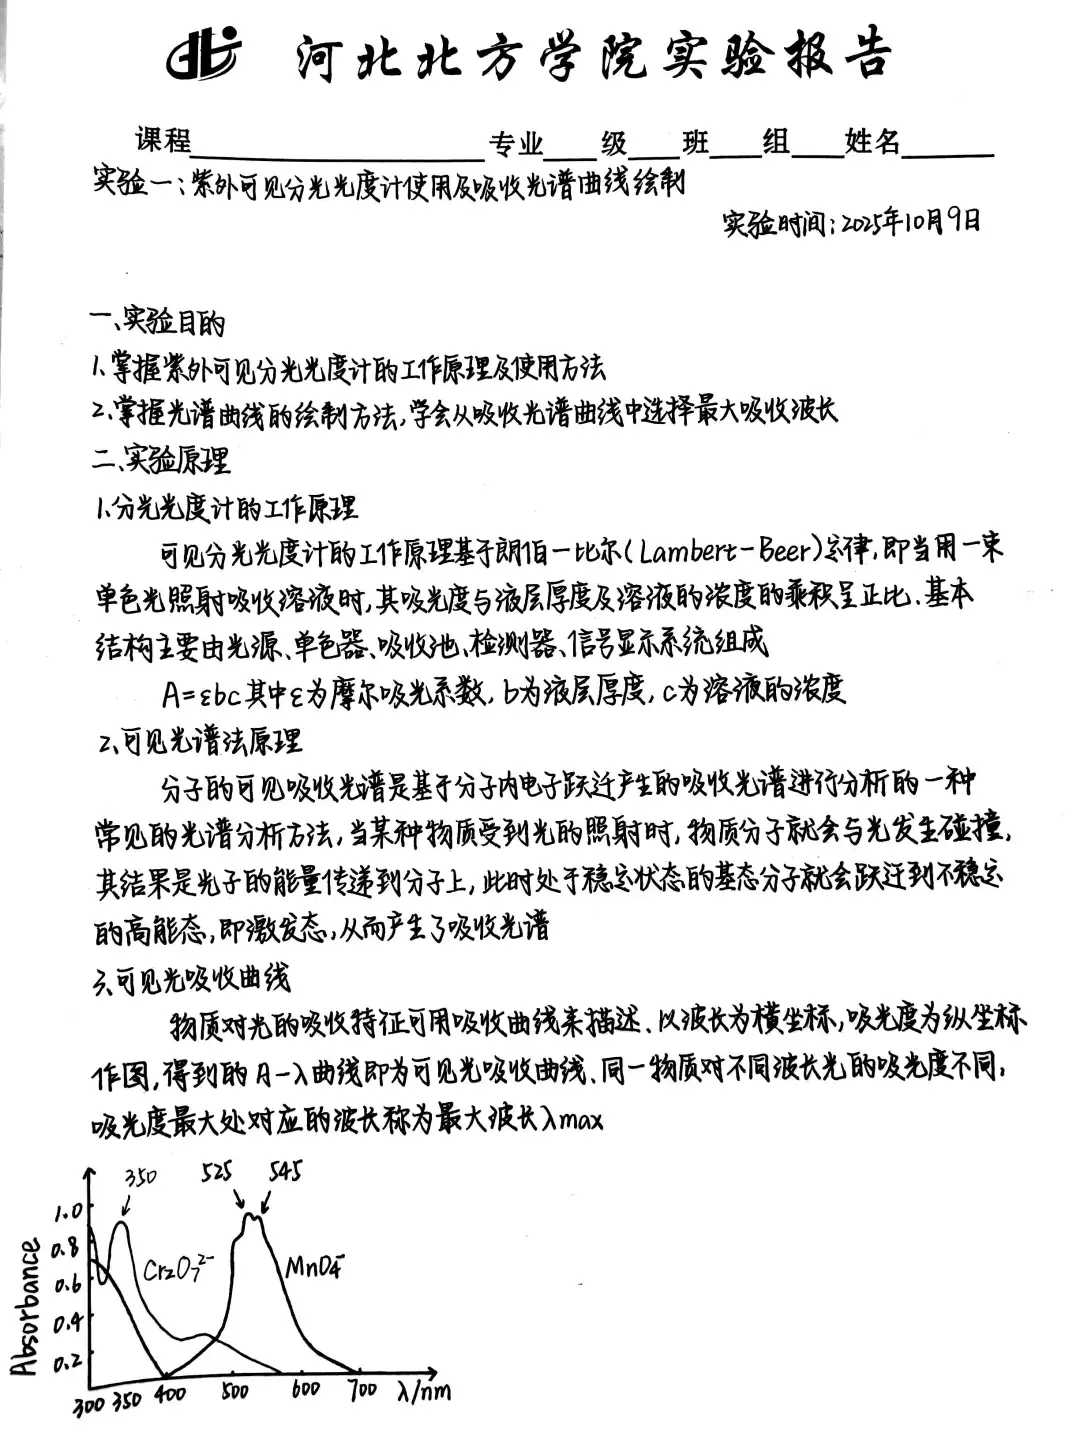 河北北方学院实验报告
课程 专业 级 班 组 姓名
实验一:紫外可见分光光度计使用及吸收光谱曲线绘制
实验时间:2025年10月9日
一、实验目的
1.掌握紫外可见分光光度计的工作原理及使用方法
2.掌握光谱曲线的绘制方法,学会从吸收光谱曲线中选择最大吸收波长
二、实验原理
1.分光光度计的工作原理
可见分光光度计的工作原理基于朗伯一比尔(Lambert-Beer)定律,即当用一束
单色光照射吸收溶液时,其吸光度与液层厚度及溶液的浓度的乘积呈正比.基本
结构主要由光源、单色器、吸收池、检测器、信号显示系统组成
A=εbc其中ε为摩尔吸光系数,b为液层厚度,c为溶液的浓度
2、可见光谱法原理
分子的可见吸收光谱是基于分子内电子跃迁产生的吸收光谱进行分析的一种
常见的光谱分析方法,当某种物质受到光的照射时,物质分子就会与光发生碰撞,
其结果是光子的能量传递到分子上,此时处于稳定状态的基态分子就会跃迁到不稳定
的高能态,即激发态,从而产生了吸收光谱
3、可见光吸收曲线
物质对光的吸收特征可用吸收曲线来描述.以波长为横坐标,吸光度为纵坐标
作图,得到的A-λ曲线即为可见光吸收曲线.同一物质对不同波长光的吸光度不同,
吸光度最大处对应的波长称为最大波长λmax
350 525 545
1.0
0.8
0.6
0.4
0.2
Absorbance
Cr₂O₇²⁻ MnO₄⁻
300 350 400 500 600 700 λ/nm